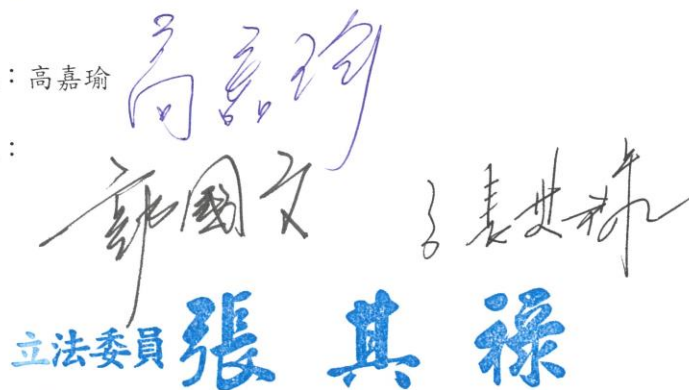 ：高嘉瑜 高嘉瑜
：
郭國文 張其祿
立法委員 張其祿